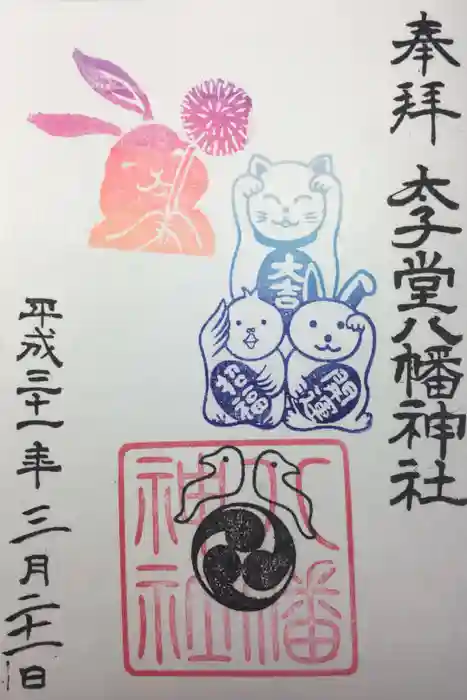 奉拝
太子堂八幡神社
大吉
招福
八幡
神社
平成三十一年三月二十一日